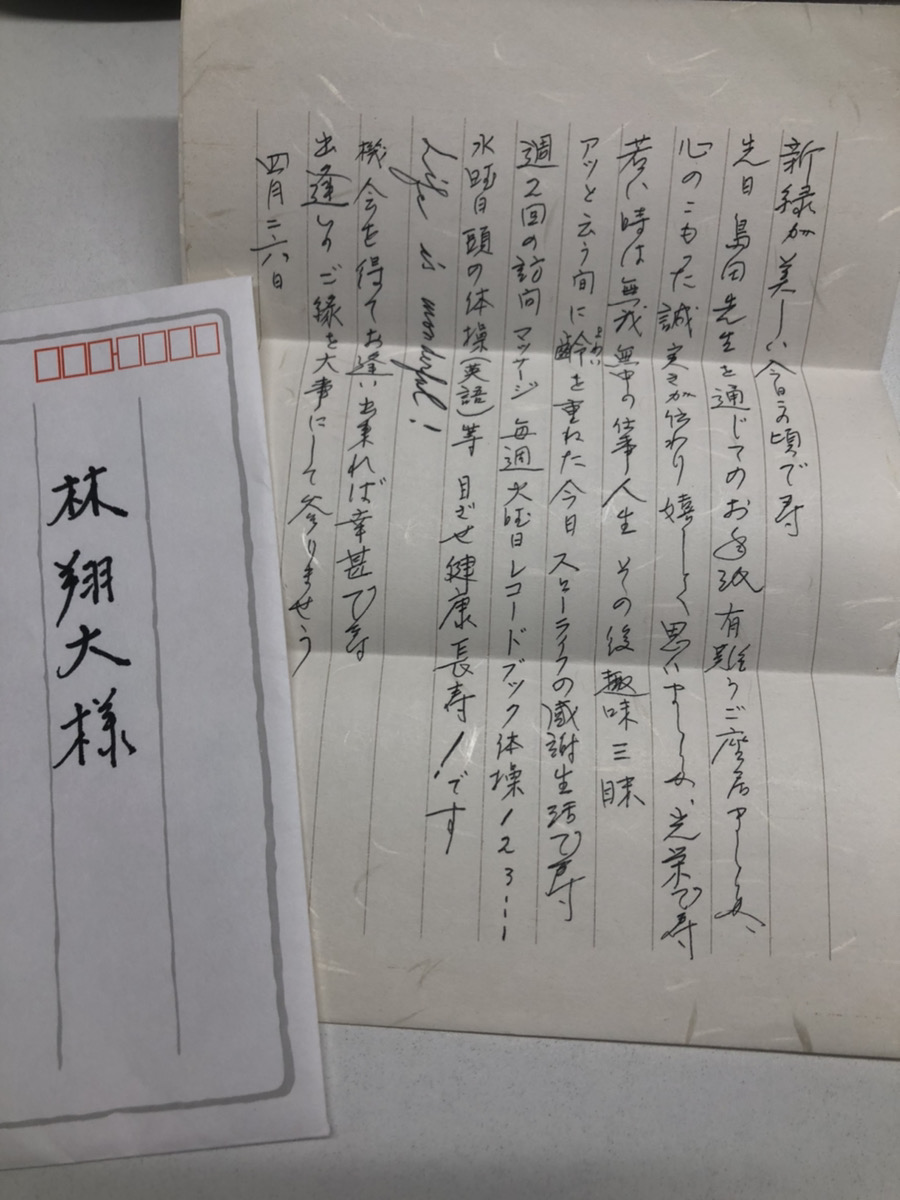 新緑が美しい今日この頃で寿
先日 島田先生を通じてのお手紙 有難うご座居ましたぁ、
心のこもった誠実さが伝わり嬉しく思いましたぁ、光栄で寿
若い時は無我無中の仕事人生 その後趣味三昧
アッと云う間に齢を重ねた今日 スローライフの感謝生活で寿
よわい
週2回の訪問マッサージ 毎週火曜日レコードブック体操123…
水曜日頭の体操(英語)等 目ざせ健康長寿!です
Life is wonderful!
機会を得てお逢い出来れば幸甚で寿
出逢いのご縁を大事にして参りませう
四月二六日
林翔大様